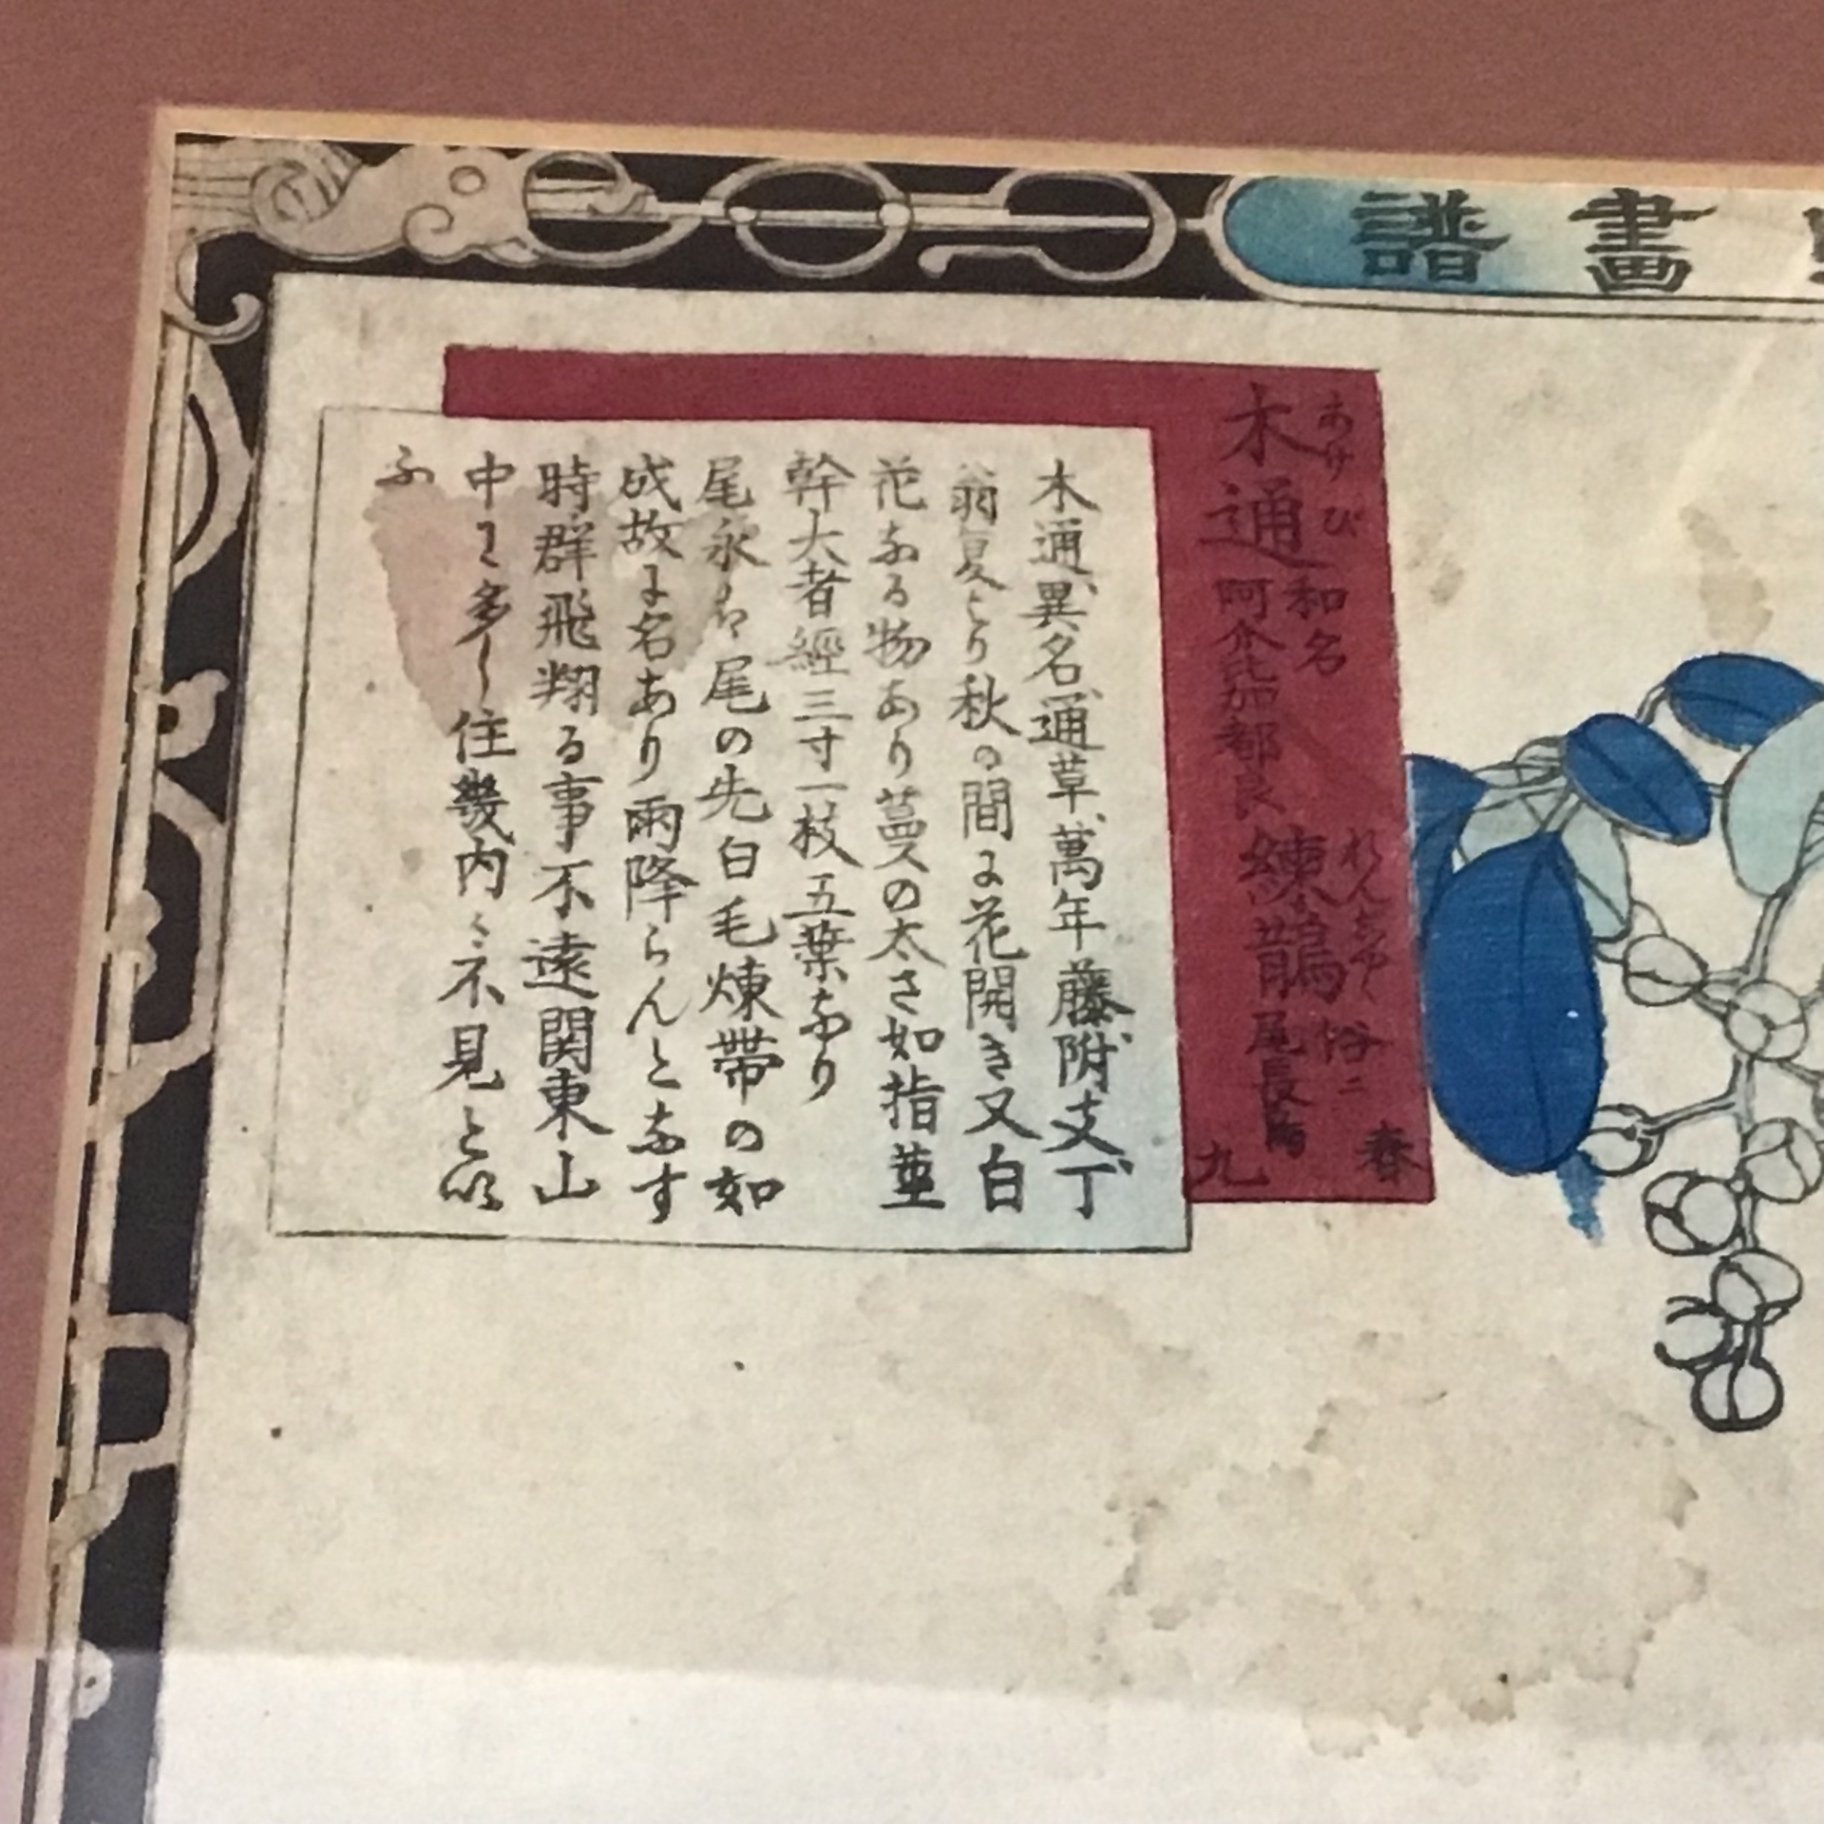 畫譜
あけび
木通 和名
阿介比加都良
れんじやく
練鵲 俗ニ
尾長鳥
春
九
木通異名通草萬年藤附支丁
翁夏より秋の間に花開き又白
花なる物あり蔓の太さ如指並
幹大者經三寸一枝五葉なり
尾永は尾の先白毛煉帯の如
成故に名あり雨降らんとなす
時群飛翔る事不遠関東山
中に多し住幾内に不見と以
ふ